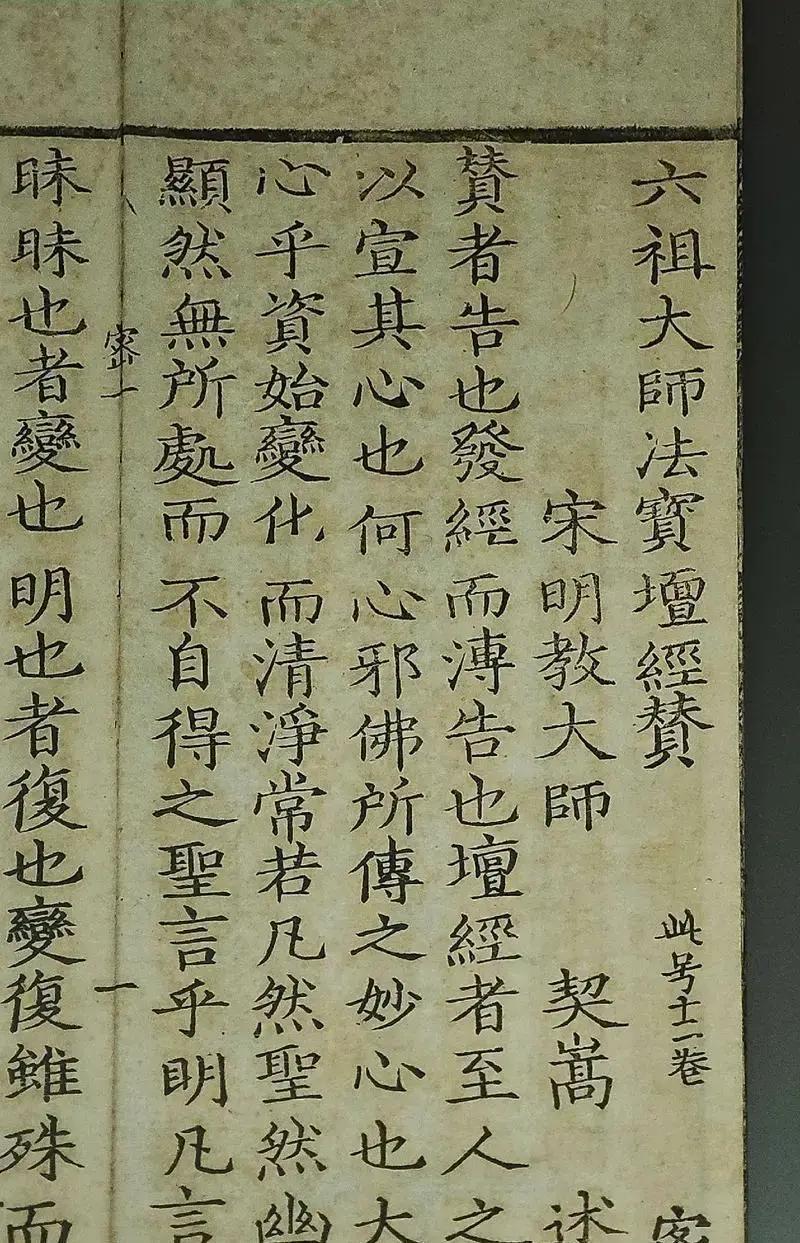 六祖大師法寶壇經贊 此号十一卷 密
宋明教大師 契嵩 述
贊者告也發經而溥告也壇經者至人之
以宣其心也何心邪佛所傳之妙心也大
心乎資始變化而清淨常若凡然聖然幽
顯然無所處而不自得之聖言乎明凡言
密一 一
昧昧也者變也明也者復也變復雖殊而